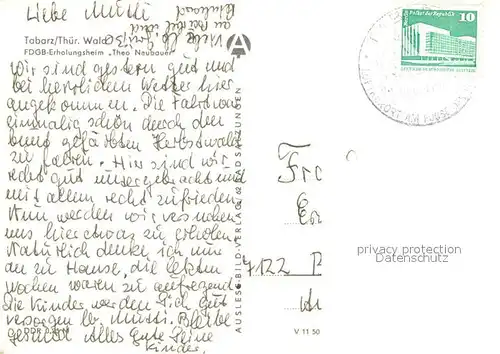 Liebe Mutti
Tabarz/Thür. Wald
FDGB-Erholungsheim „Theo Neubauer"
Wir sind gestern gut und
bei herrlichem Wetter hier
angekommen. Die Fahrt war
einmalig schön durch den
bunt gefärbten Herbstwald
zu fahren. Hier sind wir
recht gut untergebracht und
mit allem recht zufrieden.
Nun werden wir versuchen
uns hier etwas zu erholen.
Natürlich denke ich nur
an zu Hause, die letzten
Wochen waren zu aufregend.
Die Kinder werden Dich gut
versorgen lb. Mutti. Bleibe
gesund Alles Gute Deine
Kinder.
DDR
AUSLESE-BILD-VERLAG
V 11 50
Palast der Republik
10
Fr
7122
privacy protection
watermark